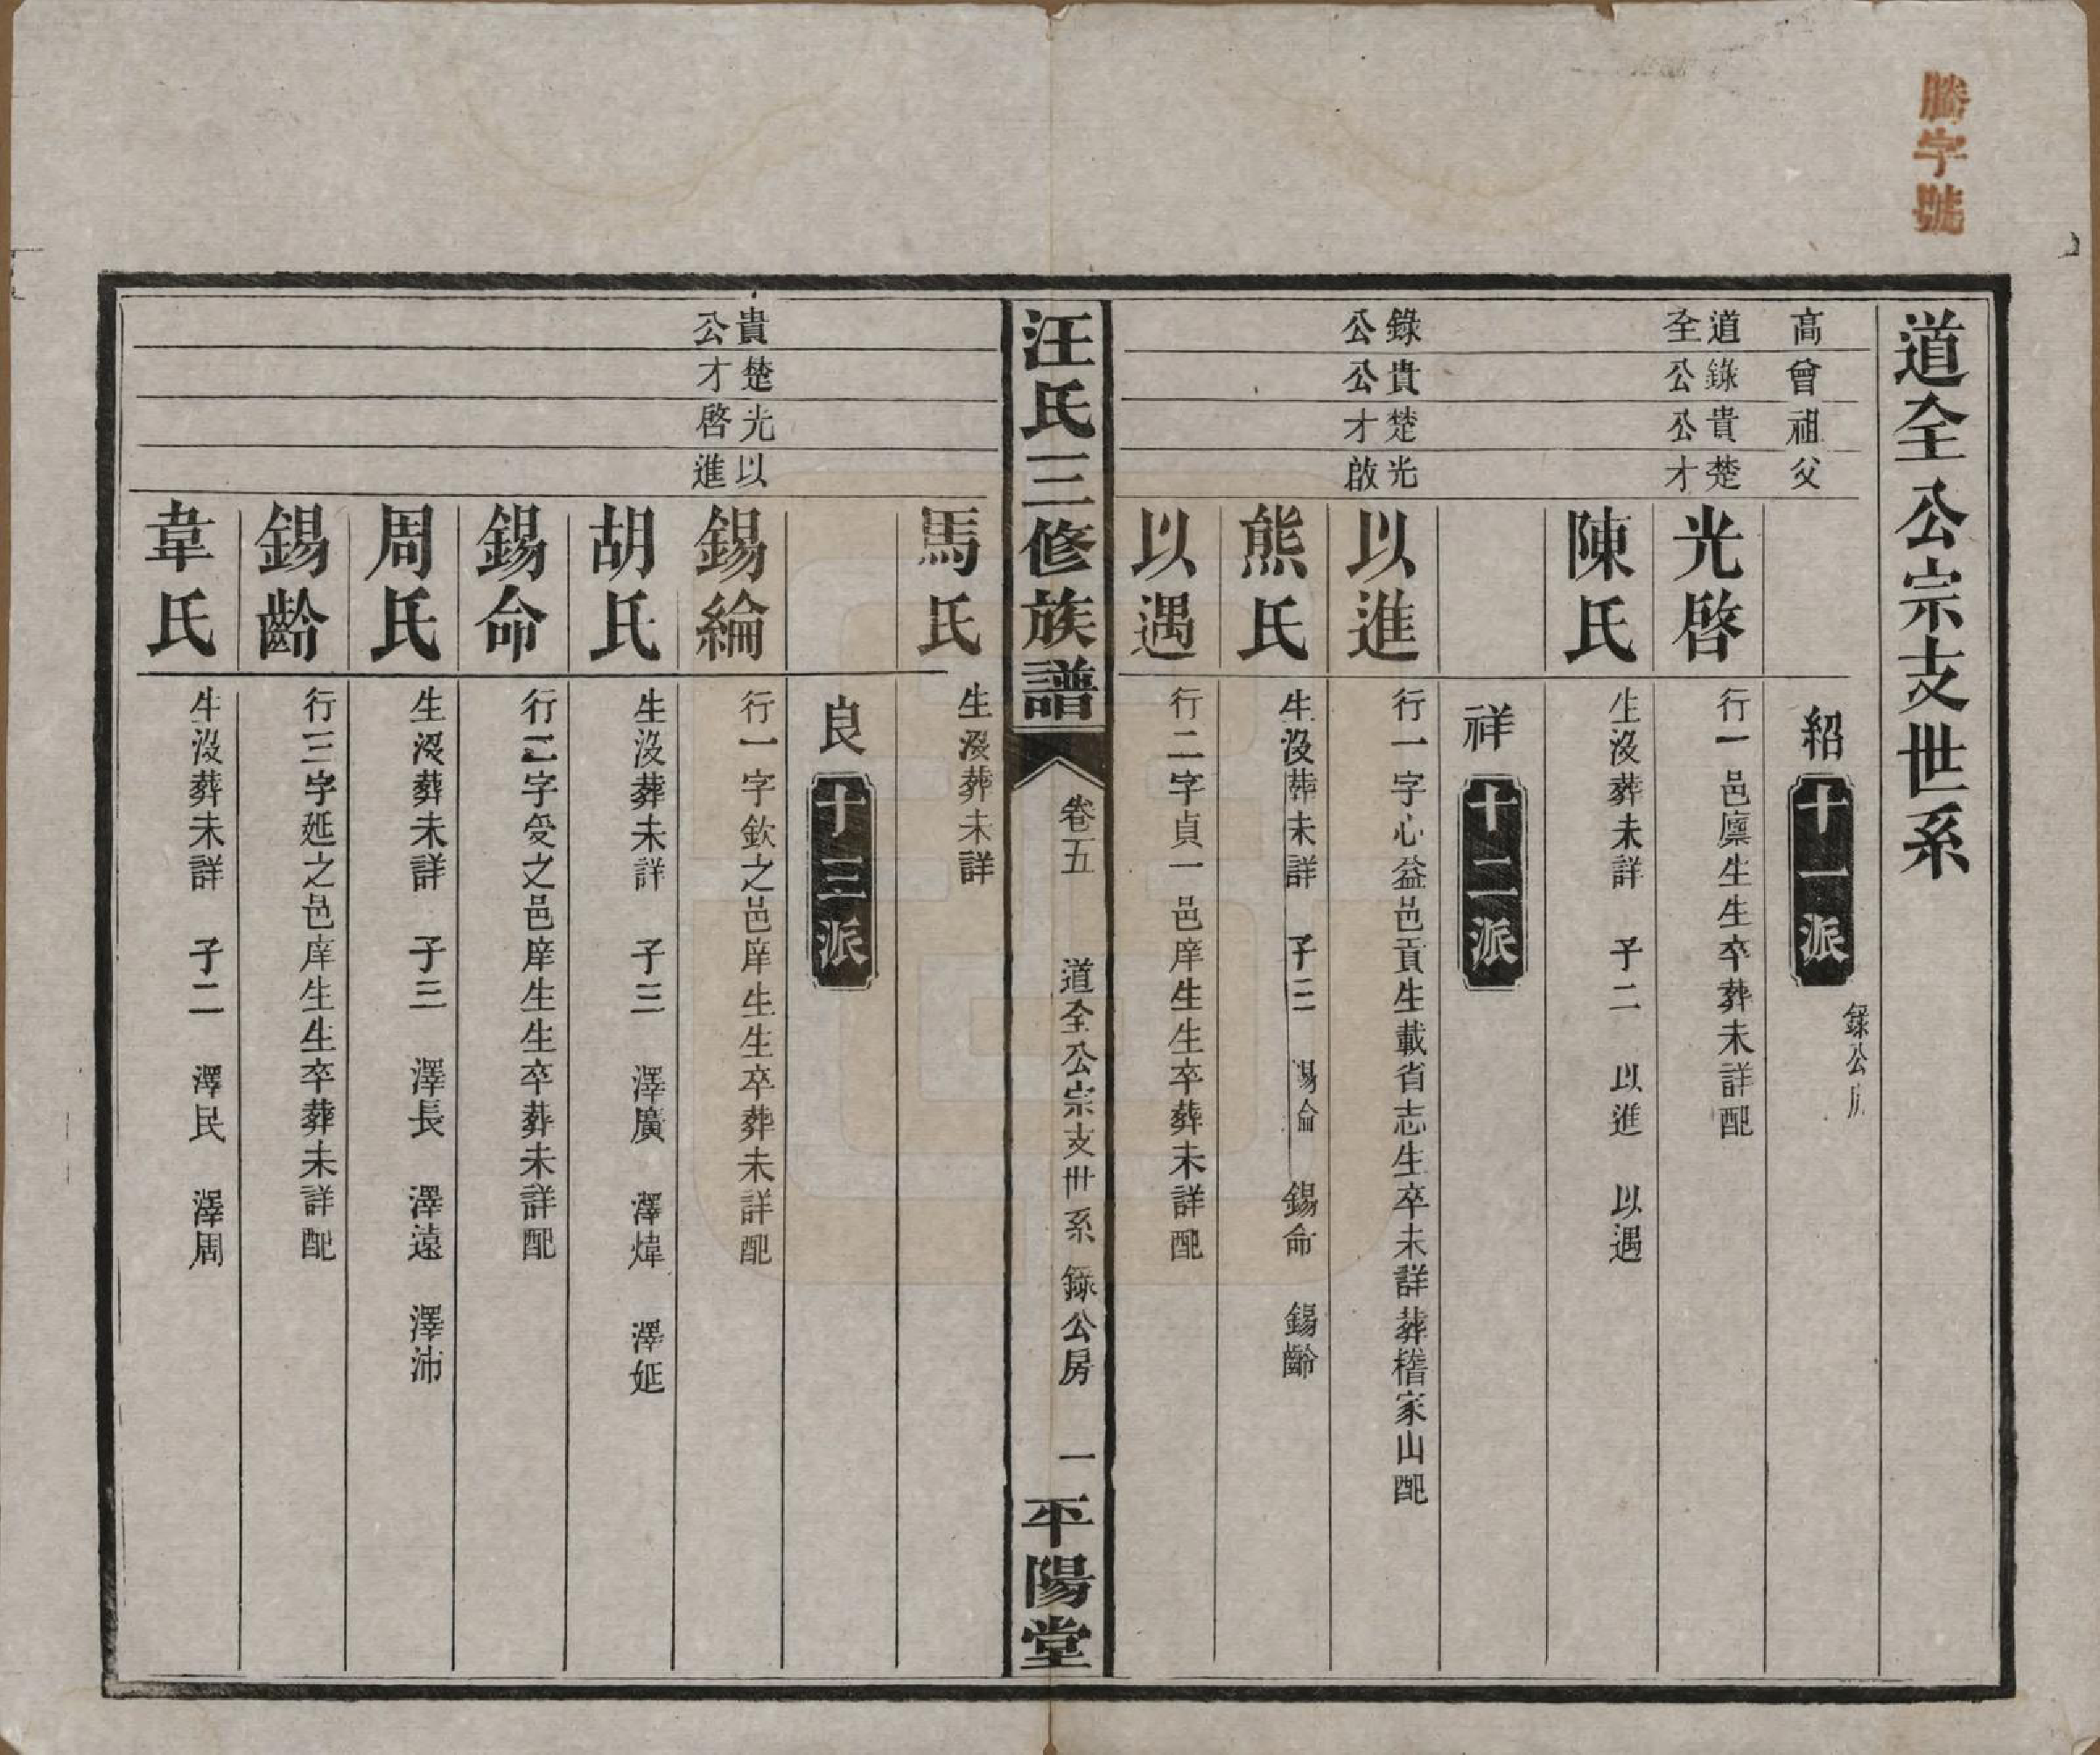 騰字號
道全公宗支世系
高曾祖父
紹 十一派
錄公
道全 錄公 貴公 楚才
光啓
行一邑廩生生卒葬未詳配
陳氏
生沒葬未詳 子二 以進 以遇
祥 十二派
錄公 貴公 楚才 光啟
以進
行一字心益邑貢生載省志生卒未詳葬稽家山配
熊氏
生沒葬未詳 子三 錫命 錫齡
以遇
行二字貞一邑庠生生卒葬未詳配
汪氏三修族譜 卷五 道全公宗支世系 錄公房 一 平陽堂
馬氏
生沒葬未詳
良 十三派
貴公 楚才 光啓 以進
錫綸
行一字欽之邑庠生生卒葬未詳配
胡氏
生沒葬未詳 子三 澤廣 澤煒 澤延
錫命
行二字受之邑庠生生卒葬未詳配
周氏
生沒葬未詳 子三 澤長 澤遠 澤沛
錫齡
行三字延之邑庠生生卒葬未詳配
韋氏
生沒葬未詳 子二 澤民 澤周